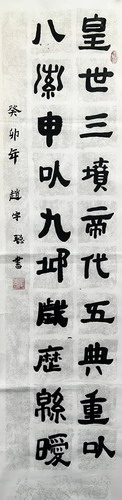 皇世三墳帝代五典重以
八索申以九邱歲歷緜曖
癸卯年 趙書